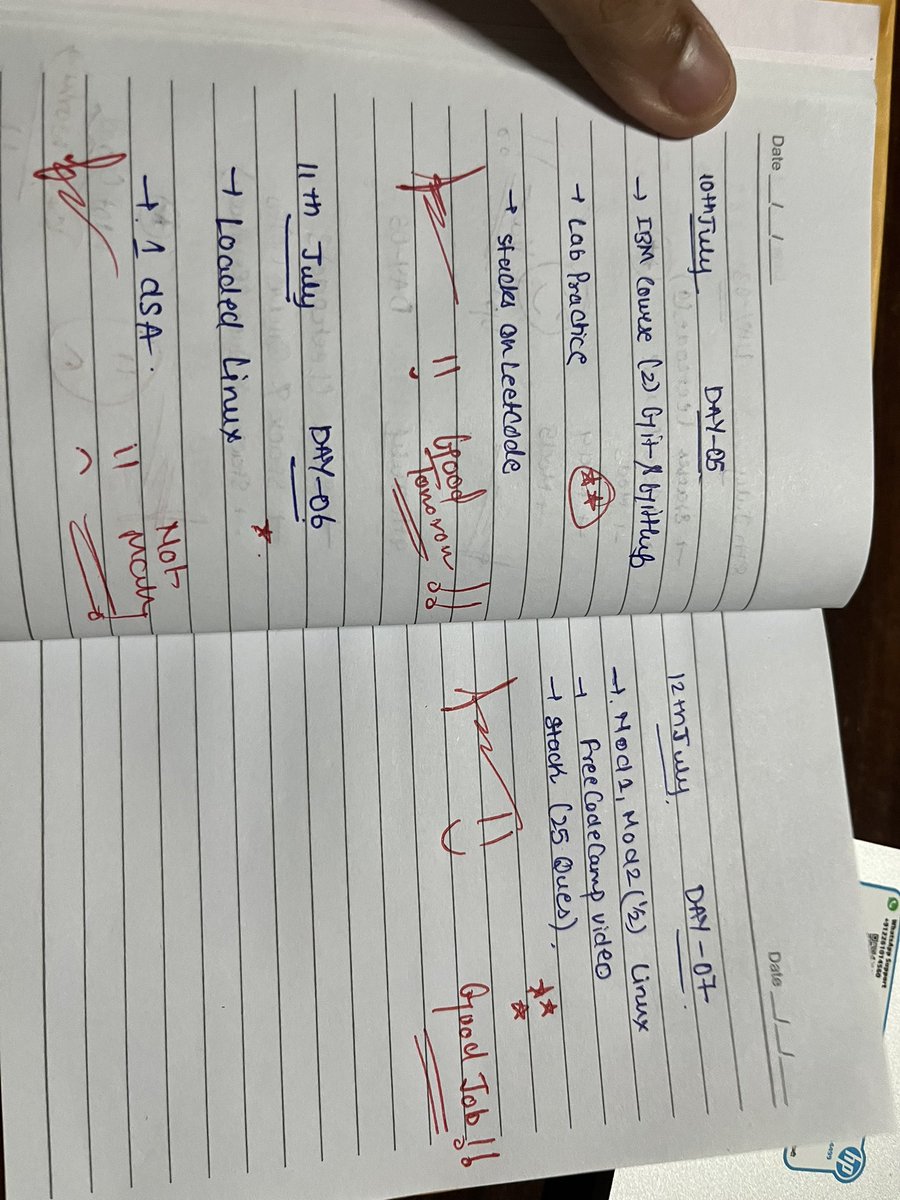 Date __/__/__
10th July DAY-05
→ IBM Course (2) Git & GitHub
→ Lab Practice
→ Stacks on LeetCode
Good
Tomorow !!
11th July DAY-06
→ Loaded Linux
→ 1 dSA.
Not
Many
Date __/__/__
12th July. DAY-07.
→ Mod 1, Mod 2 (1/2) Linux
→ FreeCodeCamp video
→ Stack (25 Ques).
Good Job !!
WhatsApp Support
hp